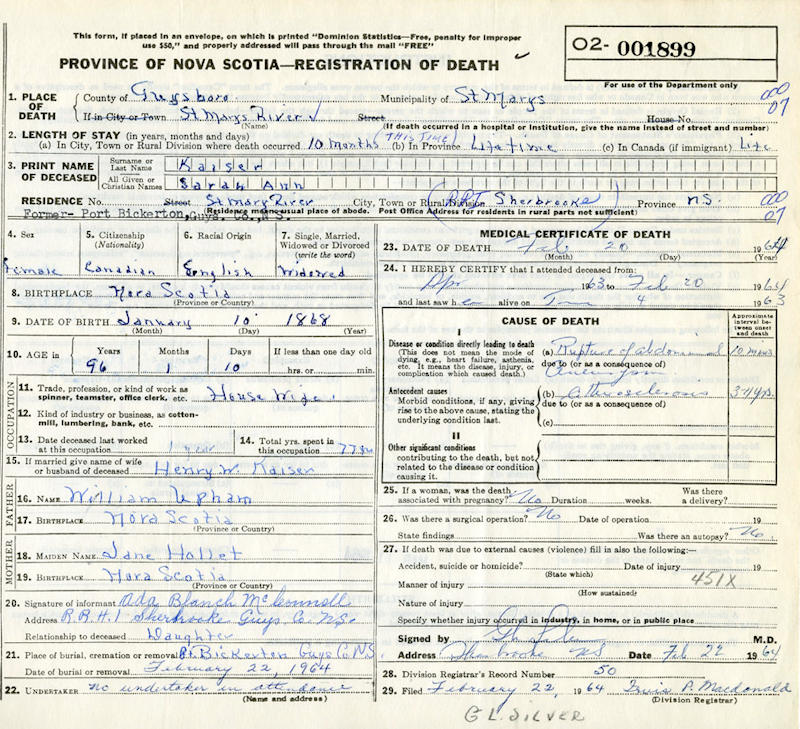 This form, if placed in an envelope, on which is printed "Dominion Statistics—Free, penalty for improper
use $50," and properly addressed will pass through the mail "FREE"
PROVINCE OF NOVA SCOTIA—REGISTRATION OF DEATH
O2- 001899
For use of the Department only
000
07
1. PLACE OF DEATH { County of Guysboro Municipality of St Marys
If in City or Town St Marys River Street House No.
(Name) (If death occurred in a hospital or Institution, give the name instead of street and number)
2. LENGTH OF STAY (in years, months and days)
(a) In City, Town or Rural Division where death occurred 10 months (THIS TIME) (b) In Province Lifetime (c) In Canada (if immigrant) Life
3. PRINT NAME OF DECEASED { Surname or Last Name Kaiser
All Given or Christian Names Sarah Ann
RESIDENCE No. Street St Mary River City, Town or Rural Division Sherbrooke Province N.S.
000
07
Former- Port Bickerton, Guys. Co. N.S. Residence means usual place of abode. Post Office Address for residents in rural parts not sufficient)
4. Sex 5. Citizenship (Nationality) 6. Racial Origin 7. Single, Married, Widowed or Divorced (write the word)
Female Canadian English Widowed
8. BIRTHPLACE Nova Scotia
(Province or Country)
9. DATE OF BIRTH January 10 1868
(Month) (Day) (Year)
10. AGE in Years Months Days If less than one day old
96 1 10 hrs. or min.
OCCUPATION
11. Trade, profession, or kind of work as spinner, teamster, office clerk, etc. House Wife
12. Kind of industry or business, as cotton-mill, lumbering, bank, etc.
13. Date deceased last worked at this occupation 1 year 14. Total yrs. spent in this occupation 77
15. If married give name of wife or husband of deceased Henry W. Kaiser
FATHER
16. NAME William Upham
17. BIRTHPLACE Nova Scotia
(Province or Country)
MOTHER
18. MAIDEN NAME Jane Hollet
19. BIRTHPLACE Nova Scotia
(Province or Country)
20. Signature of informant Ada Blanch McConnell
Address R.R.#1 Sherbrooke Guys Co N.S.
Relationship to deceased Daughter
21. Place of burial, cremation or removal Pt. Bickerton Guys Co N.S.
Date of burial or removal February 22, 1964
22. UNDERTAKER no undertaker in attendance
(Name and address)
MEDICAL CERTIFICATE OF DEATH
23. DATE OF DEATH Feb 20 1964
(Month) (Day) (Year)
24. I HEREBY CERTIFY that I attended deceased from:
Apr 1963 to Feb 20 1964
and last saw her alive on 4 1963
CAUSE OF DEATH
Approximate interval between onset and death
I
Disease or condition directly leading to death
(This does not mean the mode of dying, e.g., heart failure, asthenia, etc. It means the disease, injury, or complication which caused death.)
(a) Rupture of abdominal
due to (or as a consequence of)
aneurysm
10
Antecedent causes
Morbid conditions, if any, giving rise to the above cause, stating the underlying condition last.
(b) atherosclerosis
due to (or as a consequence of)
(c)
II
Other significant conditions
contributing to the death, but not related to the disease or condition causing it.
25. If a woman, was the death associated with pregnancy? No Duration weeks. Was there a delivery?
26. Was there a surgical operation? No Date of operation 19
State findings Was there an autopsy? No
27. If death was due to external causes (violence) fill in also the following:—
Accident, suicide or homicide? Date of injury 19
(State which)
451X
Manner of injury
(How sustained)
Nature of injury
Specify whether injury occurred in industry, in home, or in public place
Signed by M.D.
Address Sherbrooke NS Date Feb 22 1964
28. Division Registrar's Record Number 50
29. Filed February 22, 1964 P. Macdonald
(Division Registrar)
G L. SILVER